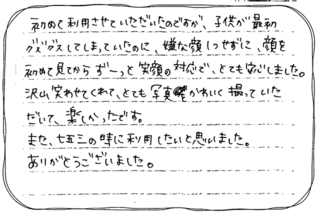 初めて利用させていただいたのですが、子供が最初
グズグズしてしまっていたのに、嫌な顔1つせずに、顔を
初めて見てからずーっと笑顔の対応で、とても安心しました。
沢山笑わせてくれて、とても写真もかわいく撮っていた
だいて、楽しかったです。
また、七五三の時に利用したいと思いました。
ありがとうございました。